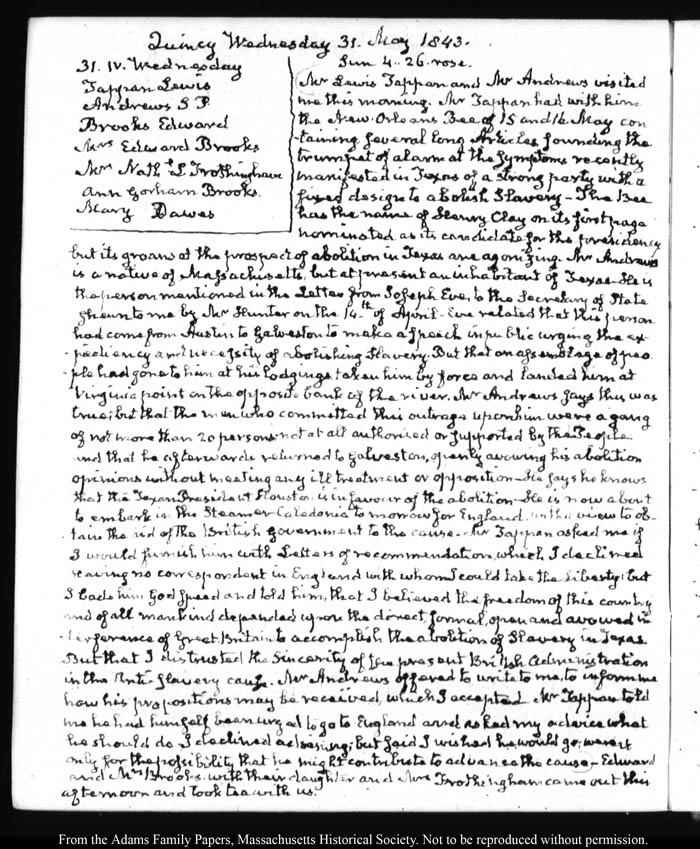 Quincy Wednesday 31. May 1843.
31. IV. Wednesday
Tappan Lewis
Andrews S P
Brooks Edward
Mrs Edward Brooks
Mrs Nath. L Frothingham
Ann Gorham Brooks.
Mary Dawes
Sun 4..26. rose.
Mr Lewis Tappan and Mr Andrews visited
me this morning. Mr Tappan had with him
the New-Orleans Bee of 15 and 16 May con
-taining several long Articles, sounding the
trumpet of alarm at the symptoms recently
manifested in Texas of a strong party with a
fixed design to abolish Slavery - The Bee
has the name of Henry Clay on its first page
nominated as its candidate for the presidency
but its groans at the prospect of abolition in Texas are agonizing. Mr Andrews
is a native of Massachusetts, but at present an inhabitant of Texas - He is
the person mentioned in the Letter from Joseph Eve, to the Secretary of State
shewn to me by Mr Hunter on the 14th of April - Eve related that this person
had come from Austin to Galveston to make a speech in public urging the ex
-pediency and necessity of abolishing Slavery. But that an assemblage of peo
-ple had gone to him at his lodgings, taken him by force and landed him at
Virginia point on the opposite bank of the river. Mr Andrews says this was
true; but that the men who committed this outrage upon him were a gang
of not more than 20 persons not at all authorised or supported by the People
and that he afterwards returned to Galveston, openly avowing his abolition
opinions without meeting any ill treatment or opposition - He says he knows
that the Texan President Houston is in favour of the abolition - He is now about
to embark in the Steamer Caledonia to morrow for England, with a view to ob-
tain the aid of the British government to the cause. - Mr Tappan asked me if
I would furnish him with Letters of recommendation, which I declined
having no correspondent in England with whom I could take the liberty; but
I bade him God speed and told him, that I believed the freedom of this country
and of all mankind depended upon the direct, formal, open and avowed in
-terference of Great Britain to accomplish the abolition of Slavery in Texas
But that I distrusted the sincerity of the present British Administration
in the Anti Slavery cause. Mr Andrews offered to write to me, to inform me
how his propositions may be received, which I accepted. Mr Tappan told
me he had himself been urged to go to England and asked my advice what
he should do. I declined advising; but said I wished he would go, were it
only for the possibility that he might contribute to advance the cause - Edward
and Mrs Brooks, with their daughter and Mrs Frothingham came out this
afternoon and took tea with us.
From the Adams Family Papers, Massachusetts Historical Society. Not to be reproduced without permission.